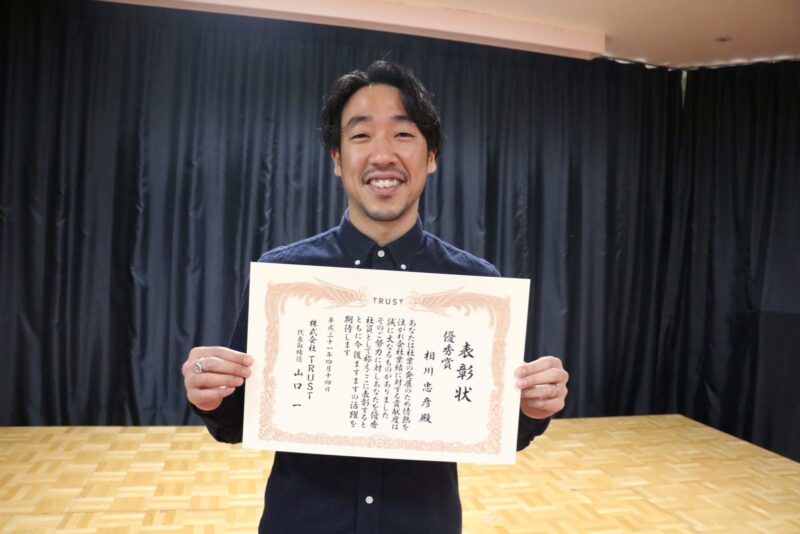 TRUST
表彰状
優秀賞
相川忠彦殿
あなたは社業の発展のため情熱を
注がれ会社業績に対する貢献度は
誠に大なるものがありました
そのご努力に対しあなたを優秀
社員として称えここに表彰すると
ともに今後ますますの活躍を
期待します
平成三十一年四月十四日
株式会社TRUST
代表取締役 山口 一